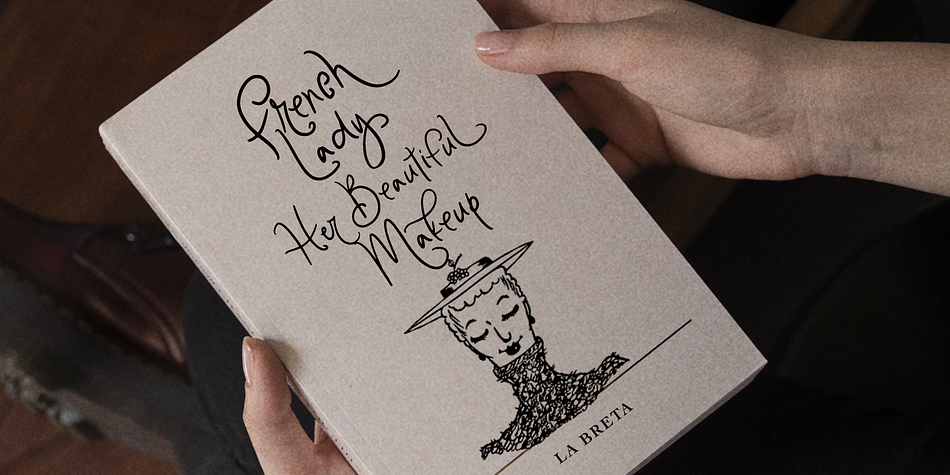 French
Lady
Her Beautiful
Makeup
LA BRETA